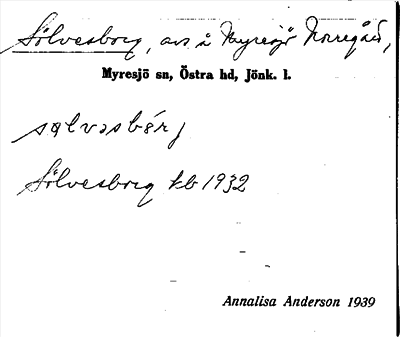 Sölvesborg, avs å Myresjö Norregård,
Myresjö sn, Östra hd, Jönk. l.
sqlvasbérj
Sölvesborg kb 1932
Annalisa Anderson 1939